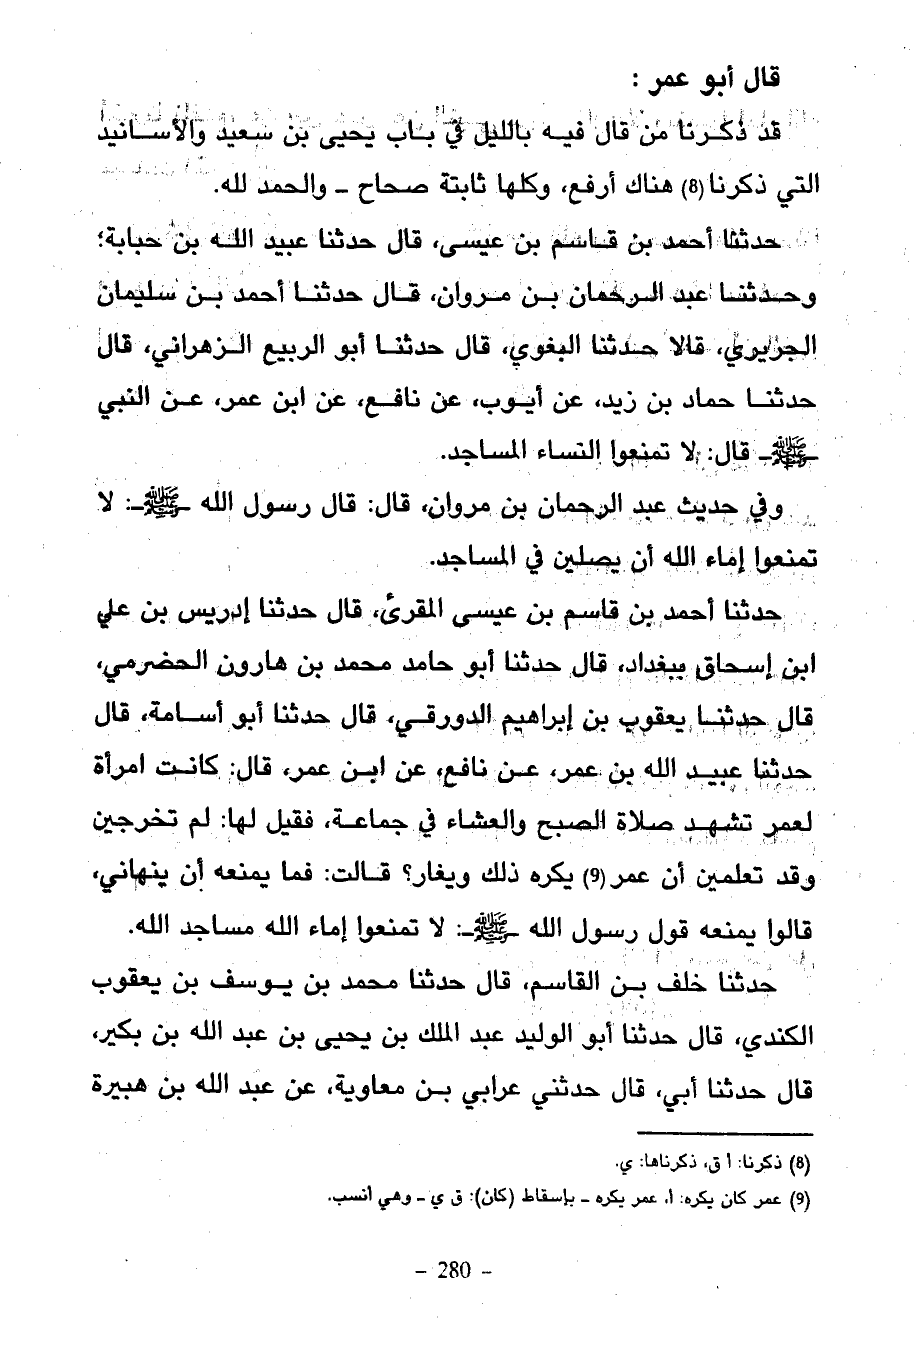 قال أبو عمر :
قد ذكرنا من قال فيه بالليل في باب يحيى بن سعيد والأسانيد
التي ذكرنا (8) هناك أرفع، وكلها ثابتة صحاح - والحمد لله.
حدثنا أحمد بن قاسم بن عيسى، قال حدثنا عبيد الله بن حبابة؛
وحدثنا عبد الرحمان بن مروان، قال حدثنا أحمد بن سليمان
الجزيري، قالا حدثنا البغوي، قال حدثنا أبو الربيع الزهراني، قال
حدثنا حماد بن زيد، عن أيوب، عن نافع، عن ابن عمر، عن النبي
-ﷺ- قال: لا تمنعوا النساء المساجد.
وفي حديث عبد الرحمان بن مروان، قال: قال رسول الله -ﷺ-: لا
تمنعوا إماء الله أن يصلين في المساجد.
حدثنا أحمد بن قاسم بن عيسى المقرئ، قال حدثنا إدريس بن علي
ابن إسحاق ببغداد، قال حدثنا أبو حامد محمد بن هارون الحضرمي،
قال حدثنا يعقوب بن إبراهيم الدورقي، قال حدثنا أبو أسامة، قال
حدثنا عبيد الله بن عمر، عن نافع، عن ابن عمر، قال: كانت امرأة
لعمر تشهد صلاة الصبح والعشاء في جماعة، فقيل لها: لم تخرجين
وقد تعلمين أن عمر (9) يكره ذلك ويغار؟ قالت: فما يمنعه أن ينهاني،
قالوا يمنعه قول رسول الله -ﷺ-: لا تمنعوا إماء الله مساجد الله.
حدثنا خلف بن القاسم، قال حدثنا محمد بن يوسف بن يعقوب
الكندي، قال حدثنا أبو الوليد عبد الملك بن يحيى بن عبد الله بن بكير،
قال حدثنا أبي، قال حدثني عرابي بن معاوية، عن عبد الله بن هبيرة
(8) ذكرنا: أ ق، ذكرناها: ي.
(9) عمر كان يكره: أ، عمر يكره - بإسقاط (كان): ق ي - وهي أنسب.
- 280 -